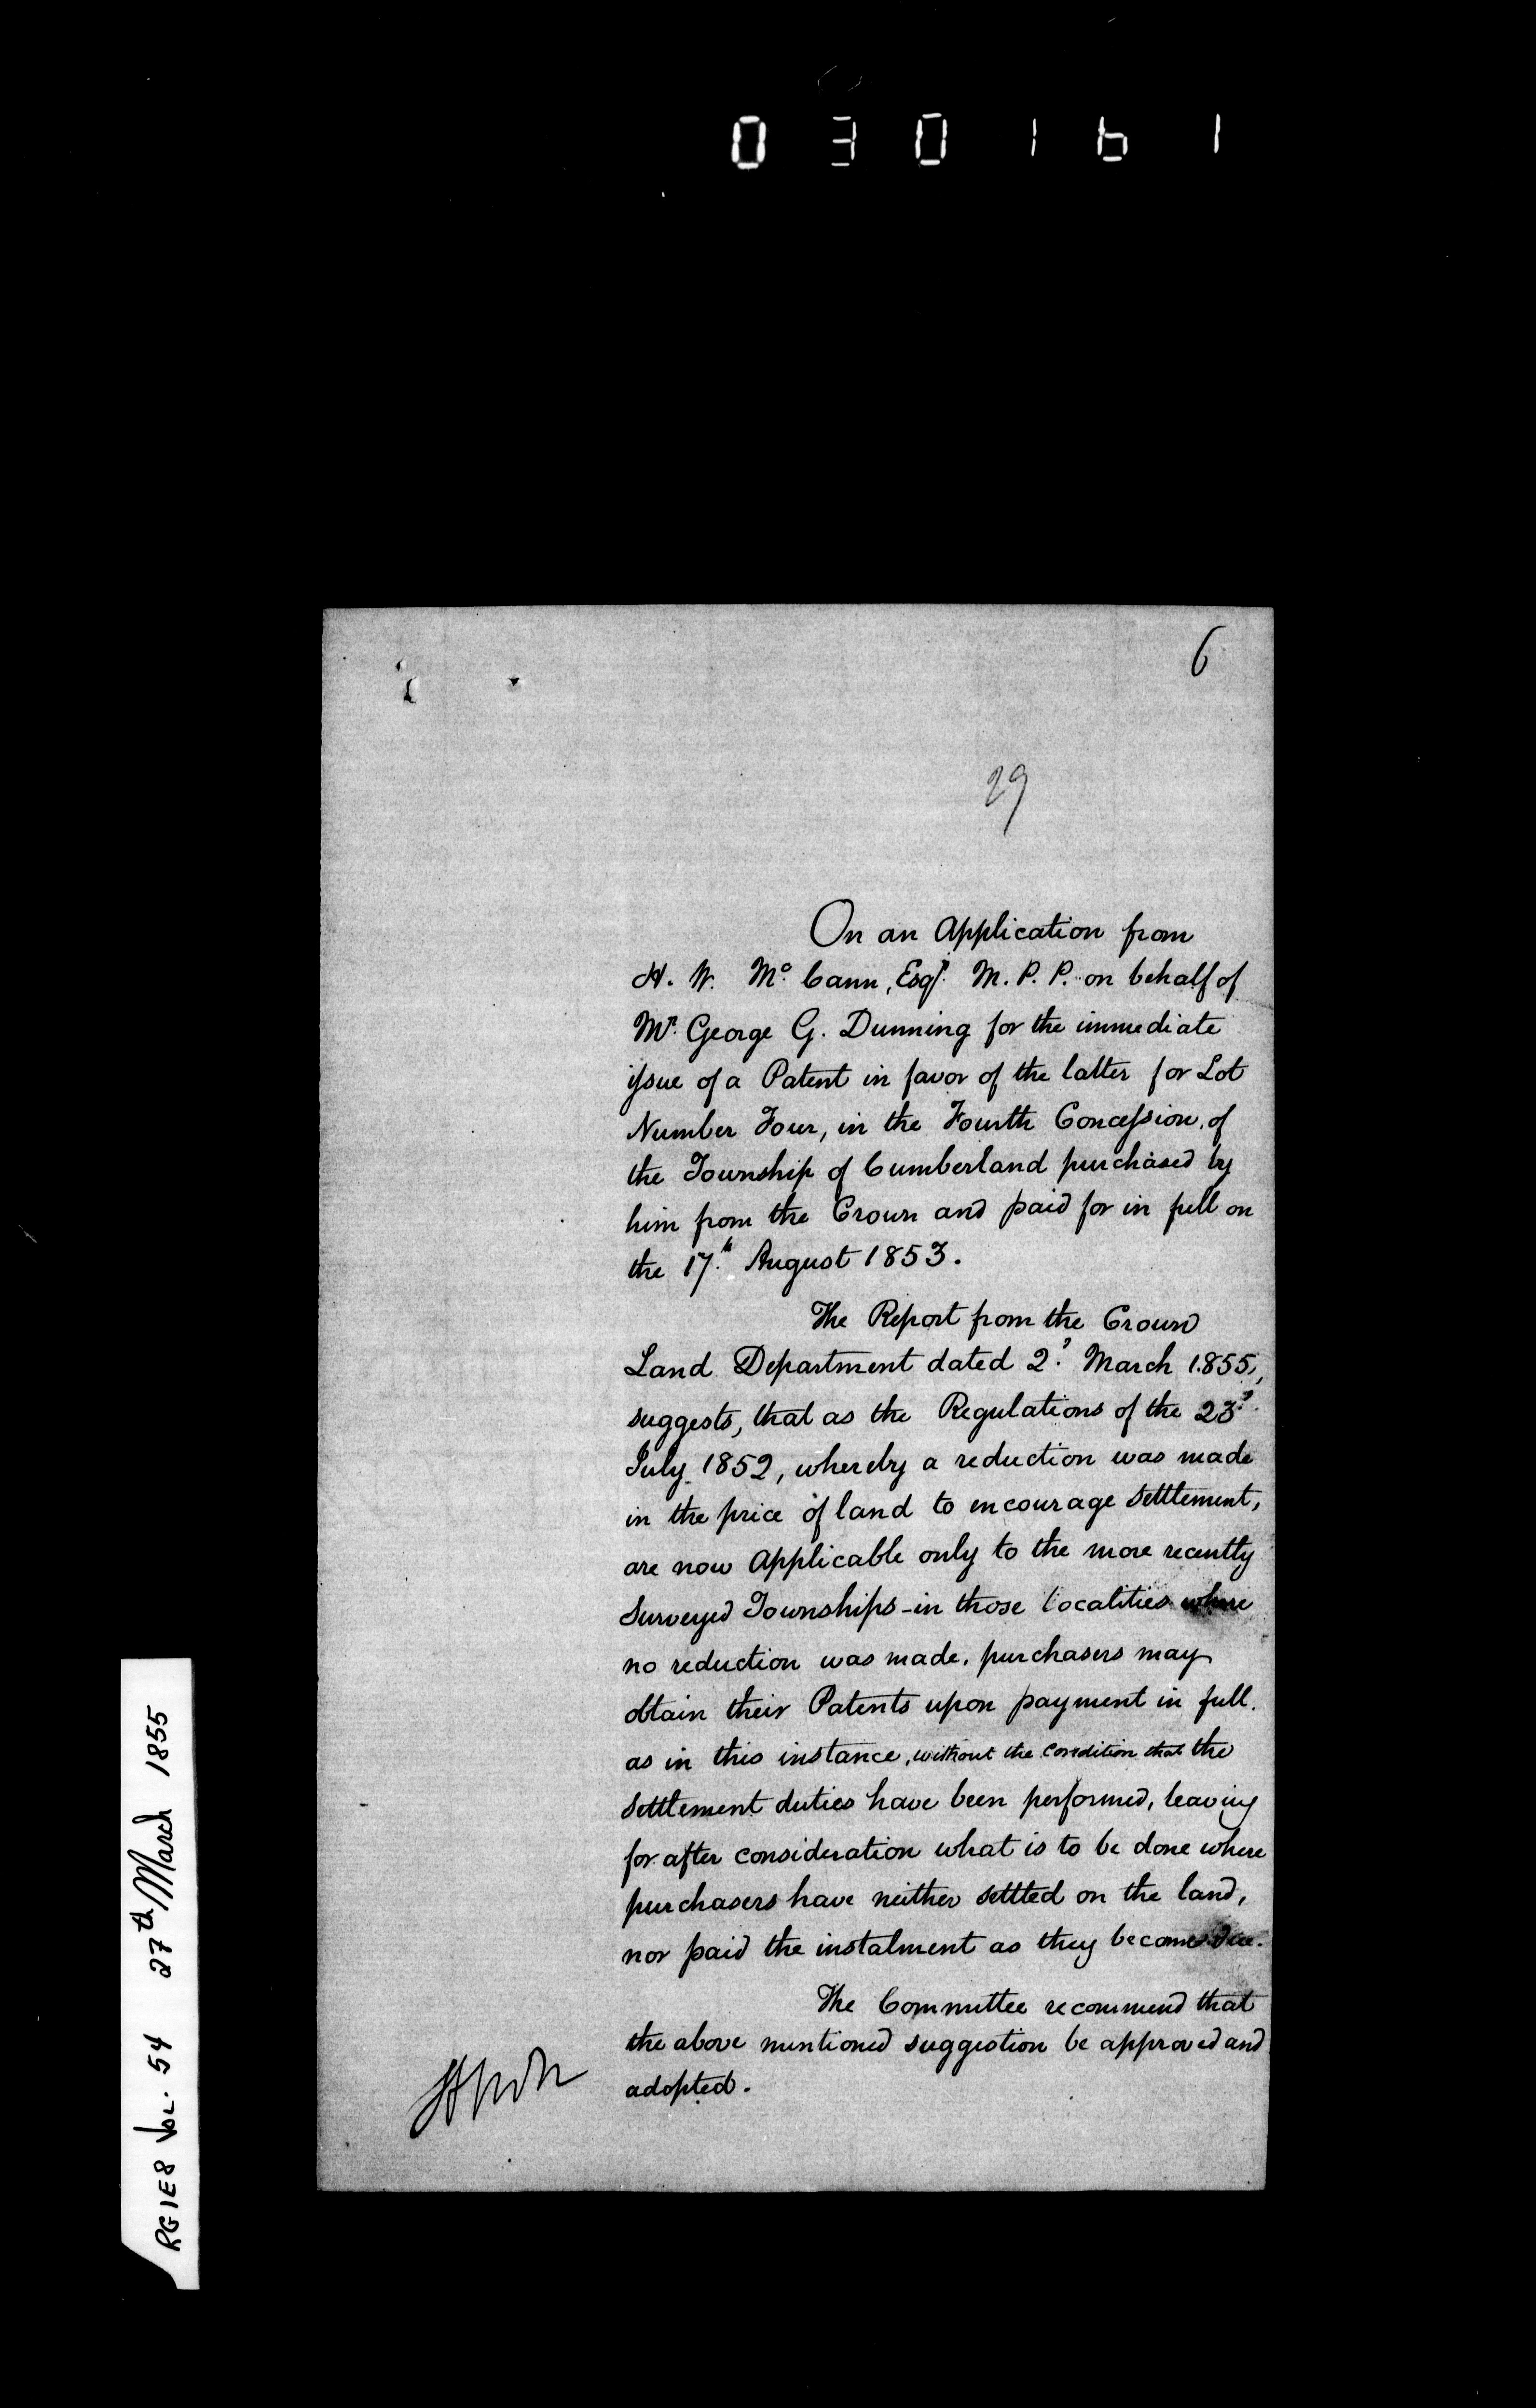 030161
6
29
On an Application from
H. W. Mc. Cann, Esqr. M. P. P. on behalf of
Mr. George G. Dunning for the immediate
issue of a Patent in favor of the latter for Lot
Number Four, in the Fourth Concession, of
the Township of Cumberland purchased by
him from the Crown and paid for in full on
the 17th. August 1853.
The Report from the Crown
Land Department dated 2d. March 1855,
suggests, that as the Regulations of the 23d.
July 1852, whereby a reduction was made
in the price of land to encourage settlement,
are now applicable only to the more recently
Surveyed Townships - in those localities where
no reduction was made, purchasers may
obtain their Patents upon payment in full.
as in this instance, without the condition that the
settlement duties have been performed, leaving
for after consideration what is to be done where
purchasers have neither settled on the land,
nor paid the instalment as they become due.
The Committee recommend that
the above mentioned suggestion be approved and
adopted.
RG1E8 Vol. 54 27th March 1855